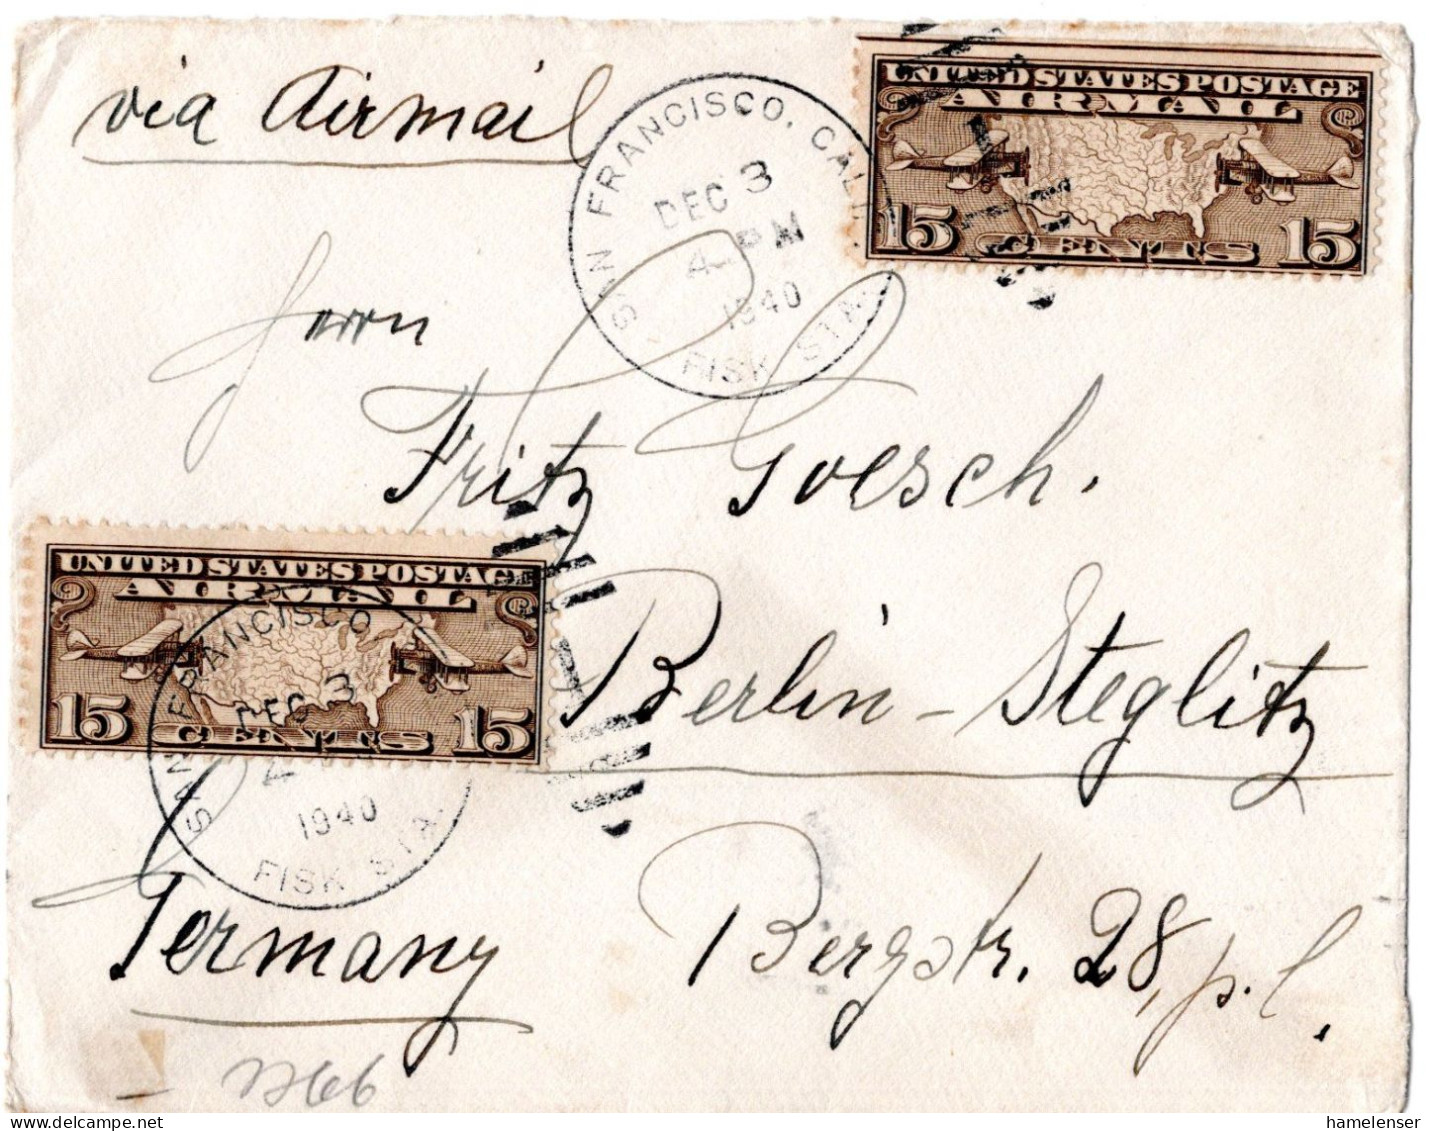 via Airmail
SAN FRANCISCO, CALIF.
DEC 3
4 PM
1940
FISK STA.
UNITED STATES POSTAGE
AIR MAIL
15 CENTS 15
Herrn
Fritz Goesch.
UNITED STATES POSTAGE
AIR MAIL
15 CENTS 15
SAN FRANCISCO
DEC 3
4
1940
FISK STA.
Berlin-Steglitz
Germany
Bergstr. 28, p.l.
hamelenser